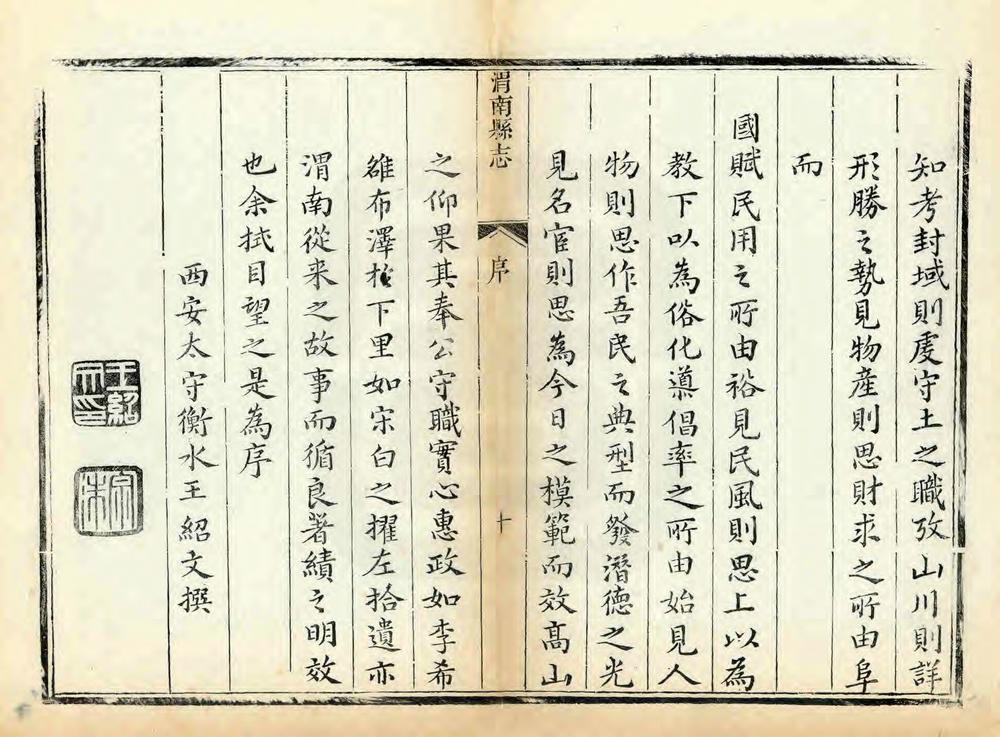 知考封域則虔守土之職攷山川則詳
形勝之勢見物產則思財求之所由阜
而
國賦民用之所由裕見民風則思上以為
教下以為俗化導倡率之所由始見人
物則思作吾民之典型而發潛德之光
見名宦則思為今日之模範而效高山
渭南縣志
序
十
之仰果其奉公守職實心惠政如李希
雒布澤於下里如宋白之擢左拾遺亦
渭南從来之故事而循良著績之明效
也余拭目望之是為序
西安太守衡水王紹文撰
王紹文印